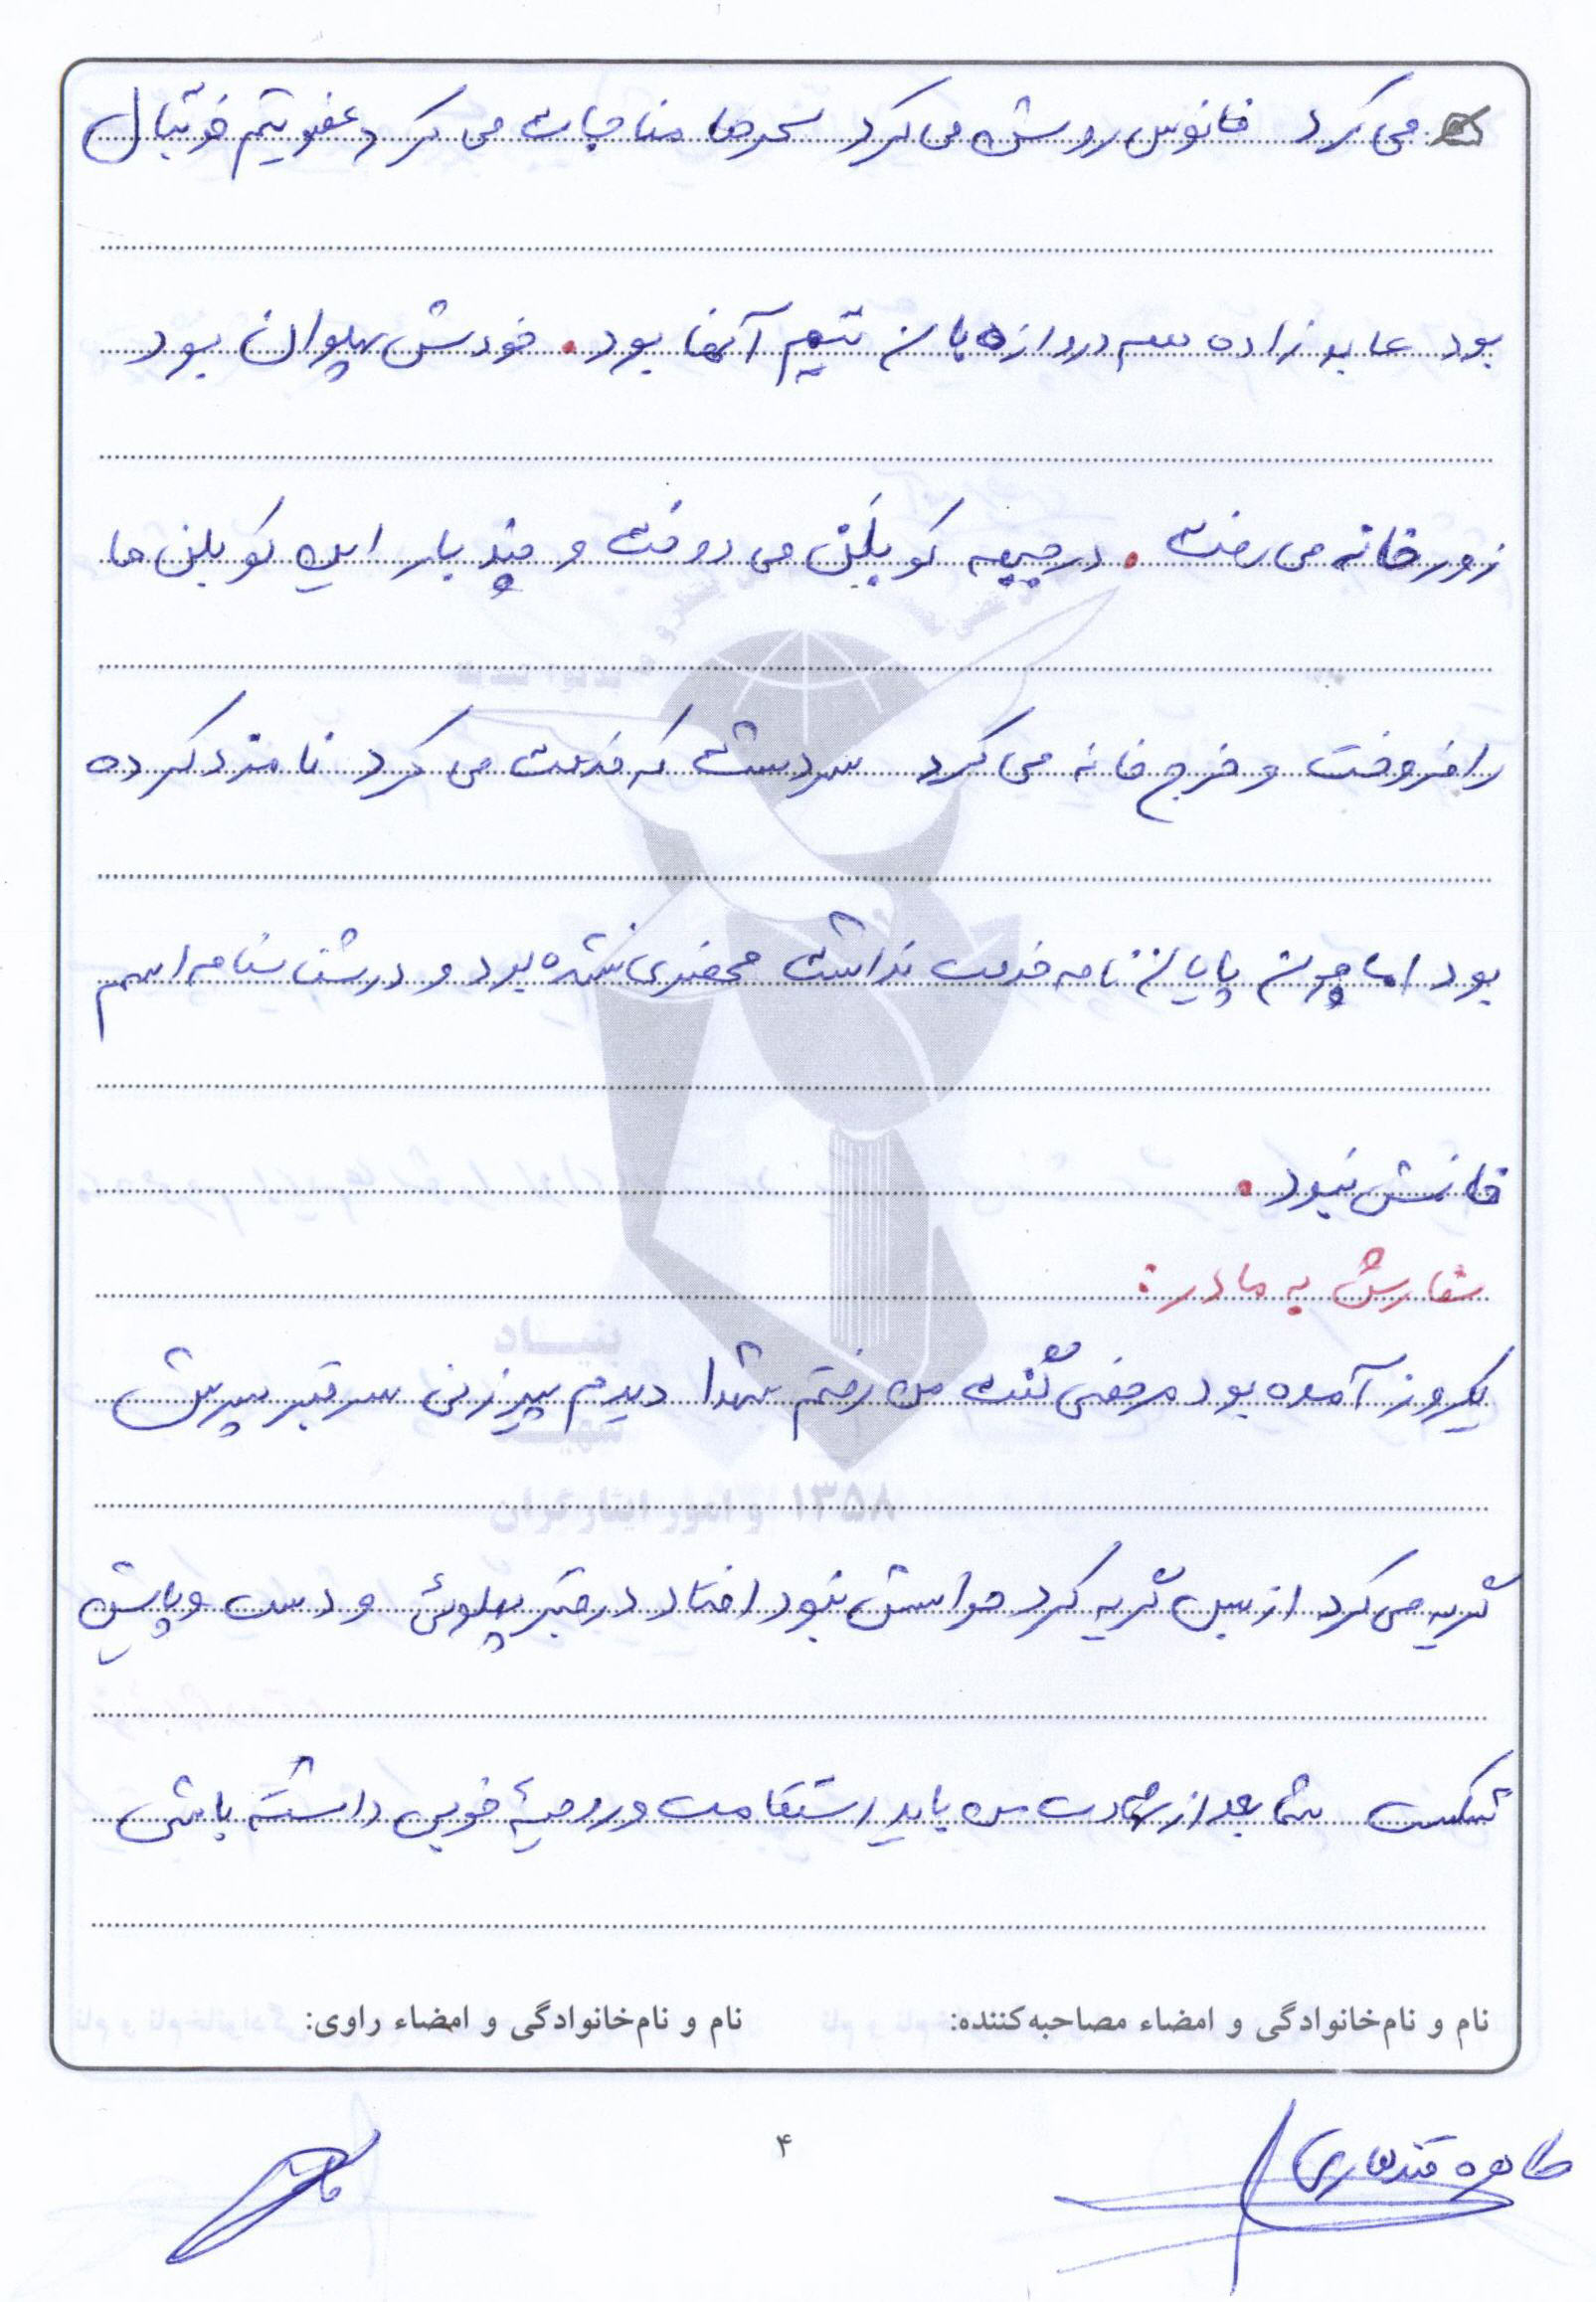 می کرد فانوس روشن می کرد سحرها مناجات می کرد عضو تیم فوتبال
بود عابدزاده سم دروازه بان تیم آنها بود. خودش پهلوان بود
زورخانه می رفت. در جبهه کوبلن می دوخت و چند بار این کوبلن ها
را فروخت و خرج خانه می کرد سردشت که خدمت می کرد نامزد کرده
بود اما چون پایان نامه خدمت نداشت محضری نشده بود و در شناسنامه اسم
خانمش نبود.
سفارش به مادر:
یکروز آمده بود مرخصی گفت من رفتم شهدا دیدم پیرزنی سر قبر پسرش
گریه می کرد از بس گریه کرد حواسش نبود افتاد در قبر پهلوئی و دست و پایش
شکست شما بعد از شهادت من باید استقامت و روحیهٔ خوبی داشته باشی
نام و نام‌خانوادگی و امضاء مصاحبه‌کننده: نام و نام‌خانوادگی و امضاء راوی:
طاهره قندهاری
۴
بنیاد
شهید
و امور ایثارگران ۱۳۵۸